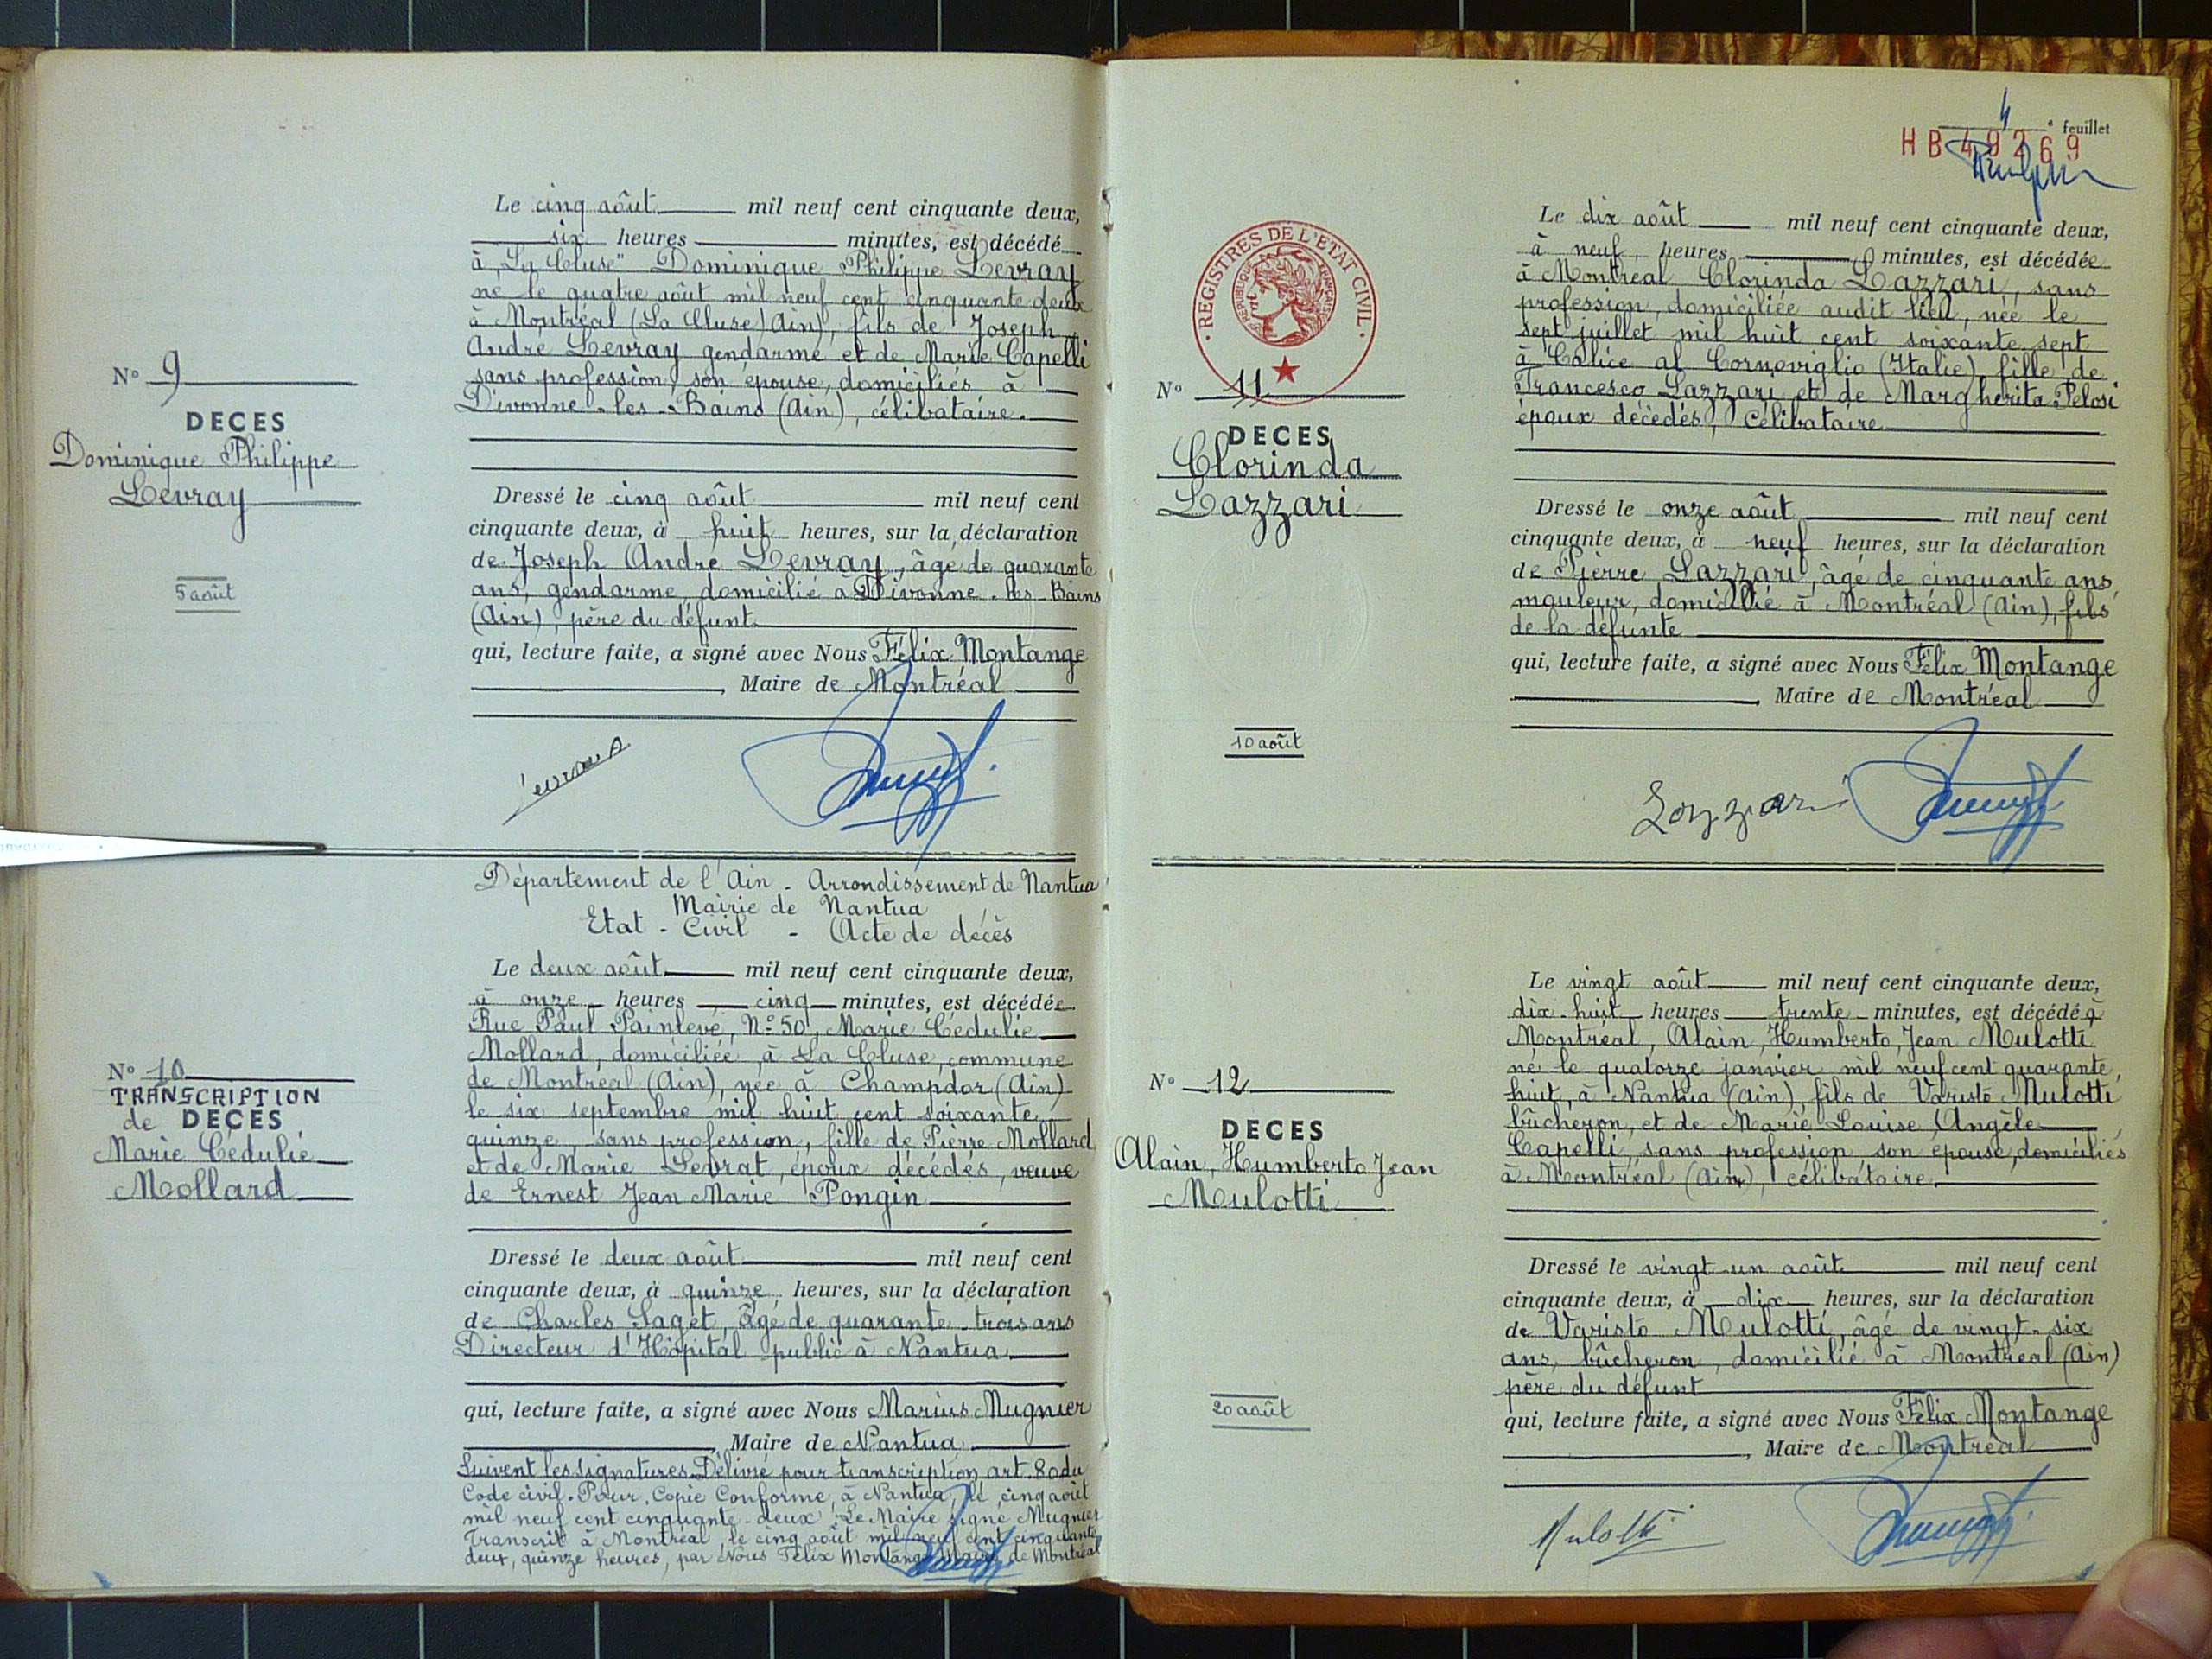 Le cinq août mil neuf cent cinquante deux,
six heures minutes, est décédé
à "La Cluse" Dominique Philippe Levray
né le quatre août mil neuf cent cinquante deux
à Montréal (La Cluse) Ain), fils de Joseph
André Levray gendarme et de Marie Capelli
sans profession, son épouse, domiciliés à
Divonne-les-Bains (Ain), célibataire.
N° 9
DECES
Dominique Philippe
Levray
5 août
Dressé le cinq août mil neuf cent
cinquante deux, à huit heures, sur la déclaration
de Joseph André Levray, âgé de quarante
ans, gendarme, domicilié à Divonne-les-Bains
(Ain), père du défunt.
qui, lecture faite, a signé avec Nous Félix Montange
, Maire de Montréal
Département de l'Ain - Arrondissement de Nantua
Mairie de Nantua
Etat - Civil - Acte de décès
Le deux août mil neuf cent cinquante deux,
à onze heures cinq minutes, est décédée
Rue Paul Painlevé, N° 50, Marie Cédulie
Mollard, domiciliée à La Cluse, commune
de Montréal (Ain), née à Champdor (Ain)
le six septembre mil huit cent soixante
quinze, sans profession, fille de Pierre Mollard
et de Marie Levrat, époux décédés, veuve
de Ernest Jean Marie Pongin
N° 10
TRANSCRIPTION
de DECES
Marie Cédulie
Mollard
Dressé le deux août mil neuf cent
cinquante deux, à quinze heures, sur la déclaration
de Charles Saget, âgé de quarante-trois ans
Directeur d'Hôpital public à Nantua
qui, lecture faite, a signé avec Nous Marius Mugnier
, Maire de Nantua
Suivent les signatures. Délivré pour transcription art. 80 du
Code civil. Pour Copie Conforme, à Nantua, le cinq août
mil neuf cent cinquante-deux. Le Maire signé Mugnier
Transcrit à Montréal, le cinq août mil neuf cent cinquante
deux, quinze heures, par Nous Félix Montange Maire de Montréal
4e feuillet
HB 49269
REGISTRES DE L'ETAT CIVIL
REPUBLIQUE FRANÇAISE
Le dix août mil neuf cent cinquante deux,
à neuf heures minutes, est décédée
à Montréal Clorinda Lazzari, sans
profession, domiciliée audit lieu, née le
sept juillet mil huit cent soixante sept
à Calice al Cornoviglio (Italie) fille de
Francesco Lazzari et de Margherita Pelosi
époux décédés, Célibataire
N° 11
DECES
Clorinda
Lazzari
10 août
Dressé le onze août mil neuf cent
cinquante deux, à neuf heures, sur la déclaration
de Pierre Lazzari, âgé de cinquante ans,
mouleur, domicilié à Montréal (Ain), fils
de la défunte
qui, lecture faite, a signé avec Nous Félix Montange
, Maire de Montréal
Lazzari
Le vingt août mil neuf cent cinquante deux,
dix-huit heures trente minutes, est décédé à
Montréal, Alain, Humberto, Jean Mulotti
né le quatorze janvier mil neuf cent quarante
huit, à Nantua (Ain), fils de Varisto Mulotti
bûcheron, et de Marie Louise Angèle
Capelli, sans profession son épouse, domiciliés
à Montréal (Ain), célibataire.
N° 12
DECES
Alain, Humberto Jean
Mulotti
20 août
Dressé le vingt-un août mil neuf cent
cinquante deux, à dix heures, sur la déclaration
de Varisto Mulotti, âgé de vingt-six
ans, bûcheron, domicilié à Montréal (Ain)
père du défunt
qui, lecture faite, a signé avec Nous Félix Montange
, Maire de Montréal
Mulotti